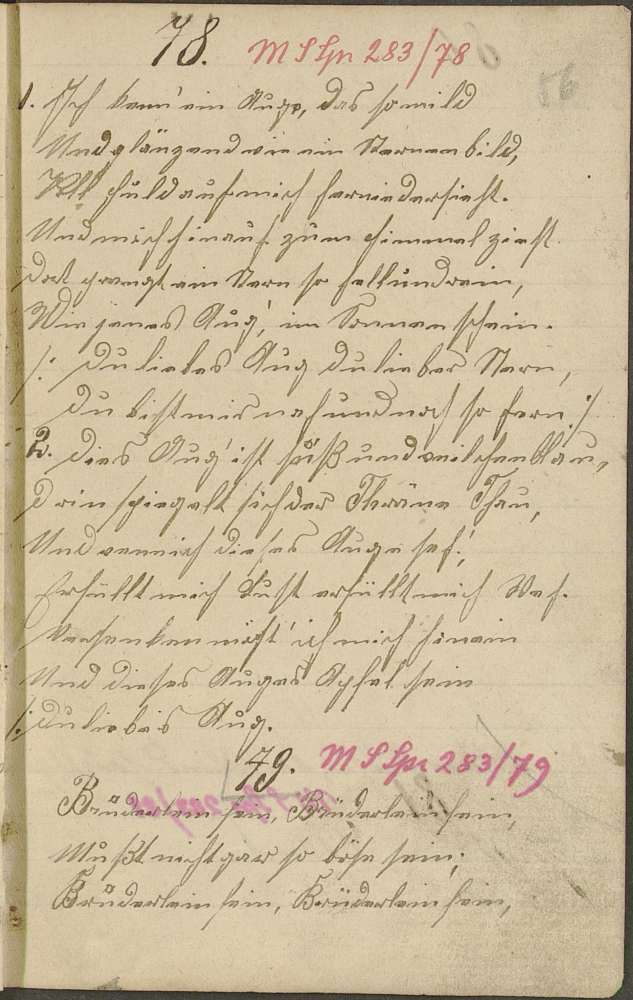 78. M S Spr 283/78
56
1. Ich kenn' ein Auge, das so mild
Und glänzend wie ein Sternenbild,
Voll Huld auf mich herniedersieht.
Und mich hinauf zum Himmel zieht
Dort prangt ein Stern so hell und rein,
Wie jenes Aug', im Sonnenschein.
/: Du liebes Aug du lieber Stern,
Du bist mir nah und noch so fern :/
2. Dies Aug' ist süß und veilchenblau,
Drin spiegelt sich der Thräne Thau,
Und wenn ich dieses Auge seh',
Erfüllt mich Lust erfüllt mich Weh.
Versenken möcht' ich mich hinein
Und dieses Auges Apfel sein
/: Du liebes Aug.
79. M S Spr 283/79
Brüderlein fein, Brüderlein fein,
Mußt nicht gar so böse sein;
Brüderlein fein, Brüderlein fein,